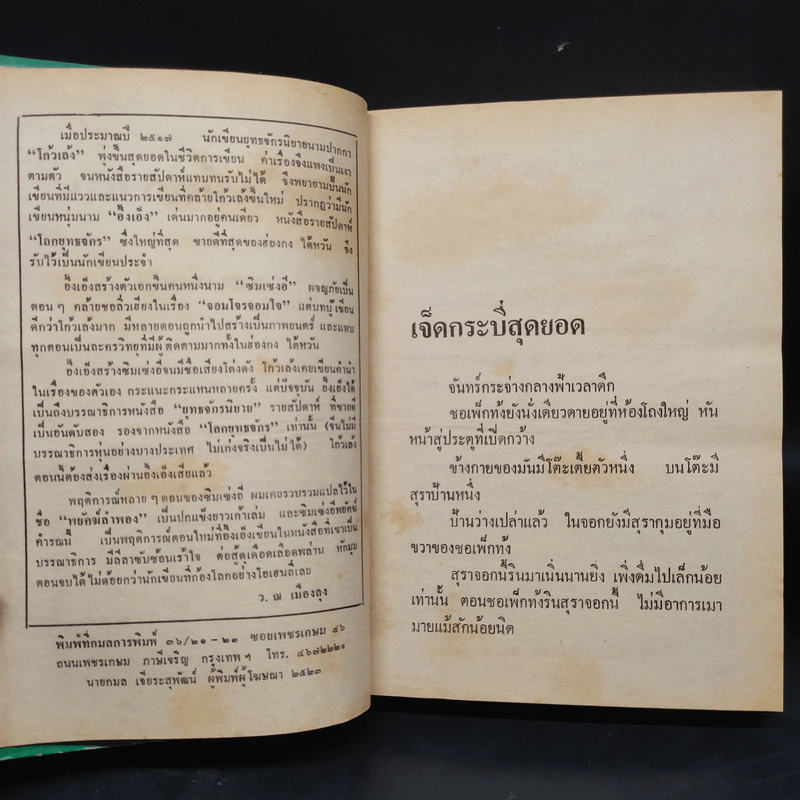 เมื่อประมาณปี ๒๕๑๗ นักเขียนยุทธจักรนิยายนามปากกา
“โก้วเล้ง” พุ่งขึ้นสุดยอดในชีวิตการเขียน ค่าเรื่องจึงแพงเป็นเงา
ตามตัว จนหนังสือรายสัปดาห์แทบทนรับไม่ได้ จึงพยายามปั้นนัก
เขียนที่มีแววและแนวการเขียนที่คล้ายโก้วเล้งขึ้นใหม่ ปรากฏว่ามีนัก
เขียนหนุ่มนาม “อึ้งเอ็ง” เด่นมากอยู่คนเดียว หนังสือรายสัปดาห์
“โลกยุทธจักร” ซึ่งใหญ่ที่สุด ขายดีที่สุดของฮ่องกง ไต้หวัน จึง
รับไว้เป็นนักเขียนประจำ
อึ้งเอ็งสร้างตัวเอกขึ้นคนหนึ่งนาม “ซิมเซ่งอี” ผจญภัยเป็น
ตอน ๆ คล้ายชอลิ่วเฮียงในเรื่อง “จอมโจรจอมใจ” แต่บทบู๊เขียน
ดีกว่าโก้วเล้งมาก มีหลายตอนถูกนำไปสร้างเป็นภาพยนตร์ และแทบ
ทุกตอนเป็นละครวิทยุที่มีผู้ติดตามมากทั้งในฮ่องกง ไต้หวัน
อึ้งเอ็งสร้างซิมเซ่งอีจนมีชื่อเสียงโด่งดัง โก้วเล้งเคยเขียนคำนำ
ในเรื่องของตัวเอง กระแนะกระแหนหลายครั้ง แต่ปัจจุบัน อึ้งเอ็งได้
เป็นถึงบรรณาธิการหนังสือ “ยุทธจักรนิยาย” รายสัปดาห์ ที่ขายดี
เป็นอันดับสอง รองจากหนังสือ “โลกยุทธจักร” เท่านั้น (จีนไม่มี
บรรณาธิการหุ่นอย่างบางประเทศ ไม่เก่งจริงเป็นไม่ได้) โก้วเล้ง
ตอนนี้ต้องส่งเรื่องผ่านอึ้งเอ็งเสียแล้ว
พฤติการณ์หลาย ๆ ตอนของซิมเซ่งอี ผมเคยรวบรวมแปลไว้ใน
ชื่อ “พยัคฆ์ลำพอง” เป็นปกแข็งยาวเก้าเล่ม และซิมเซ่งอีพยัคฆ์
คำรณนี้ เป็นพฤติการณ์ตอนใหม่ที่อึ้งเอ็งเขียนในหนังสือที่เขาเป็น
บรรณาธิการ มีลีลาซับซ้อนเร้าใจ ต่อสู้เดือดเลือดพล่าน หักมุม
ตอนจบได้ไม่ด้อยกว่านักเขียนที่ก้องโลกอย่างโอเฮนลี่เลย
ว. ณ เมืองลุง
พิมพ์ที่กมลการพิมพ์ ๓๖/๒๑ – ๒๓ ซอยเพชรเกษม ๔๖
ถนนเพชรเกษม ภาษีเจริญ กรุงเทพฯ โทร. ๔๖๗๒๒๒๑
นายกมล เจียระสุพัฒน์ ผู้พิมพ์ผู้โฆษณา ๒๕๒๓
เจ็ดกระบี่สุดยอด
จันทร์กระจ่างกลางฟ้าเวลาดึก
ชอเพ็กท้งยังนั่งเดียวดายอยู่ที่ห้องโถงใหญ่ หัน
หน้าสู่ประตูที่เปิดกว้าง
ข้างกายของมันมีโต๊ะเตี้ยตัวหนึ่ง บนโต๊ะมี
สุราป้านหนึ่ง
ป้านว่างเปล่าแล้ว ในจอกยังมีสุรากุมอยู่ที่มือ
ขวาของชอเพ็กท้ง
สุราจอกนี้รินมาเนิ่นนานยิ่ง เพิ่งดื่มไปเล็กน้อย
เท่านั้น ตอนชอเพ็กท้งรินสุราจอกนี้ ไม่มีอาการเมา
มายแม้สักน้อยนิด